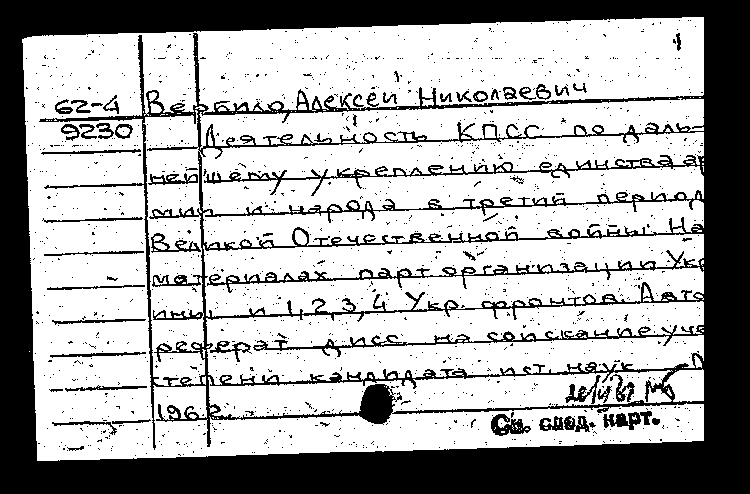 1
62-4 Вербило, Алексей Николаевич
9230 Деятельность КПСС по даль-
нейшему укреплению единства ар
мии и народа в третий период
Великой Отечественной войны. На
материалах парт. организации Укр
ины и 1, 2, 3, 4 Укр. фронтов. Авто
реферат дисс. на соискание уче
степени кандидата ист. наук.
1962.
См. след. карт.